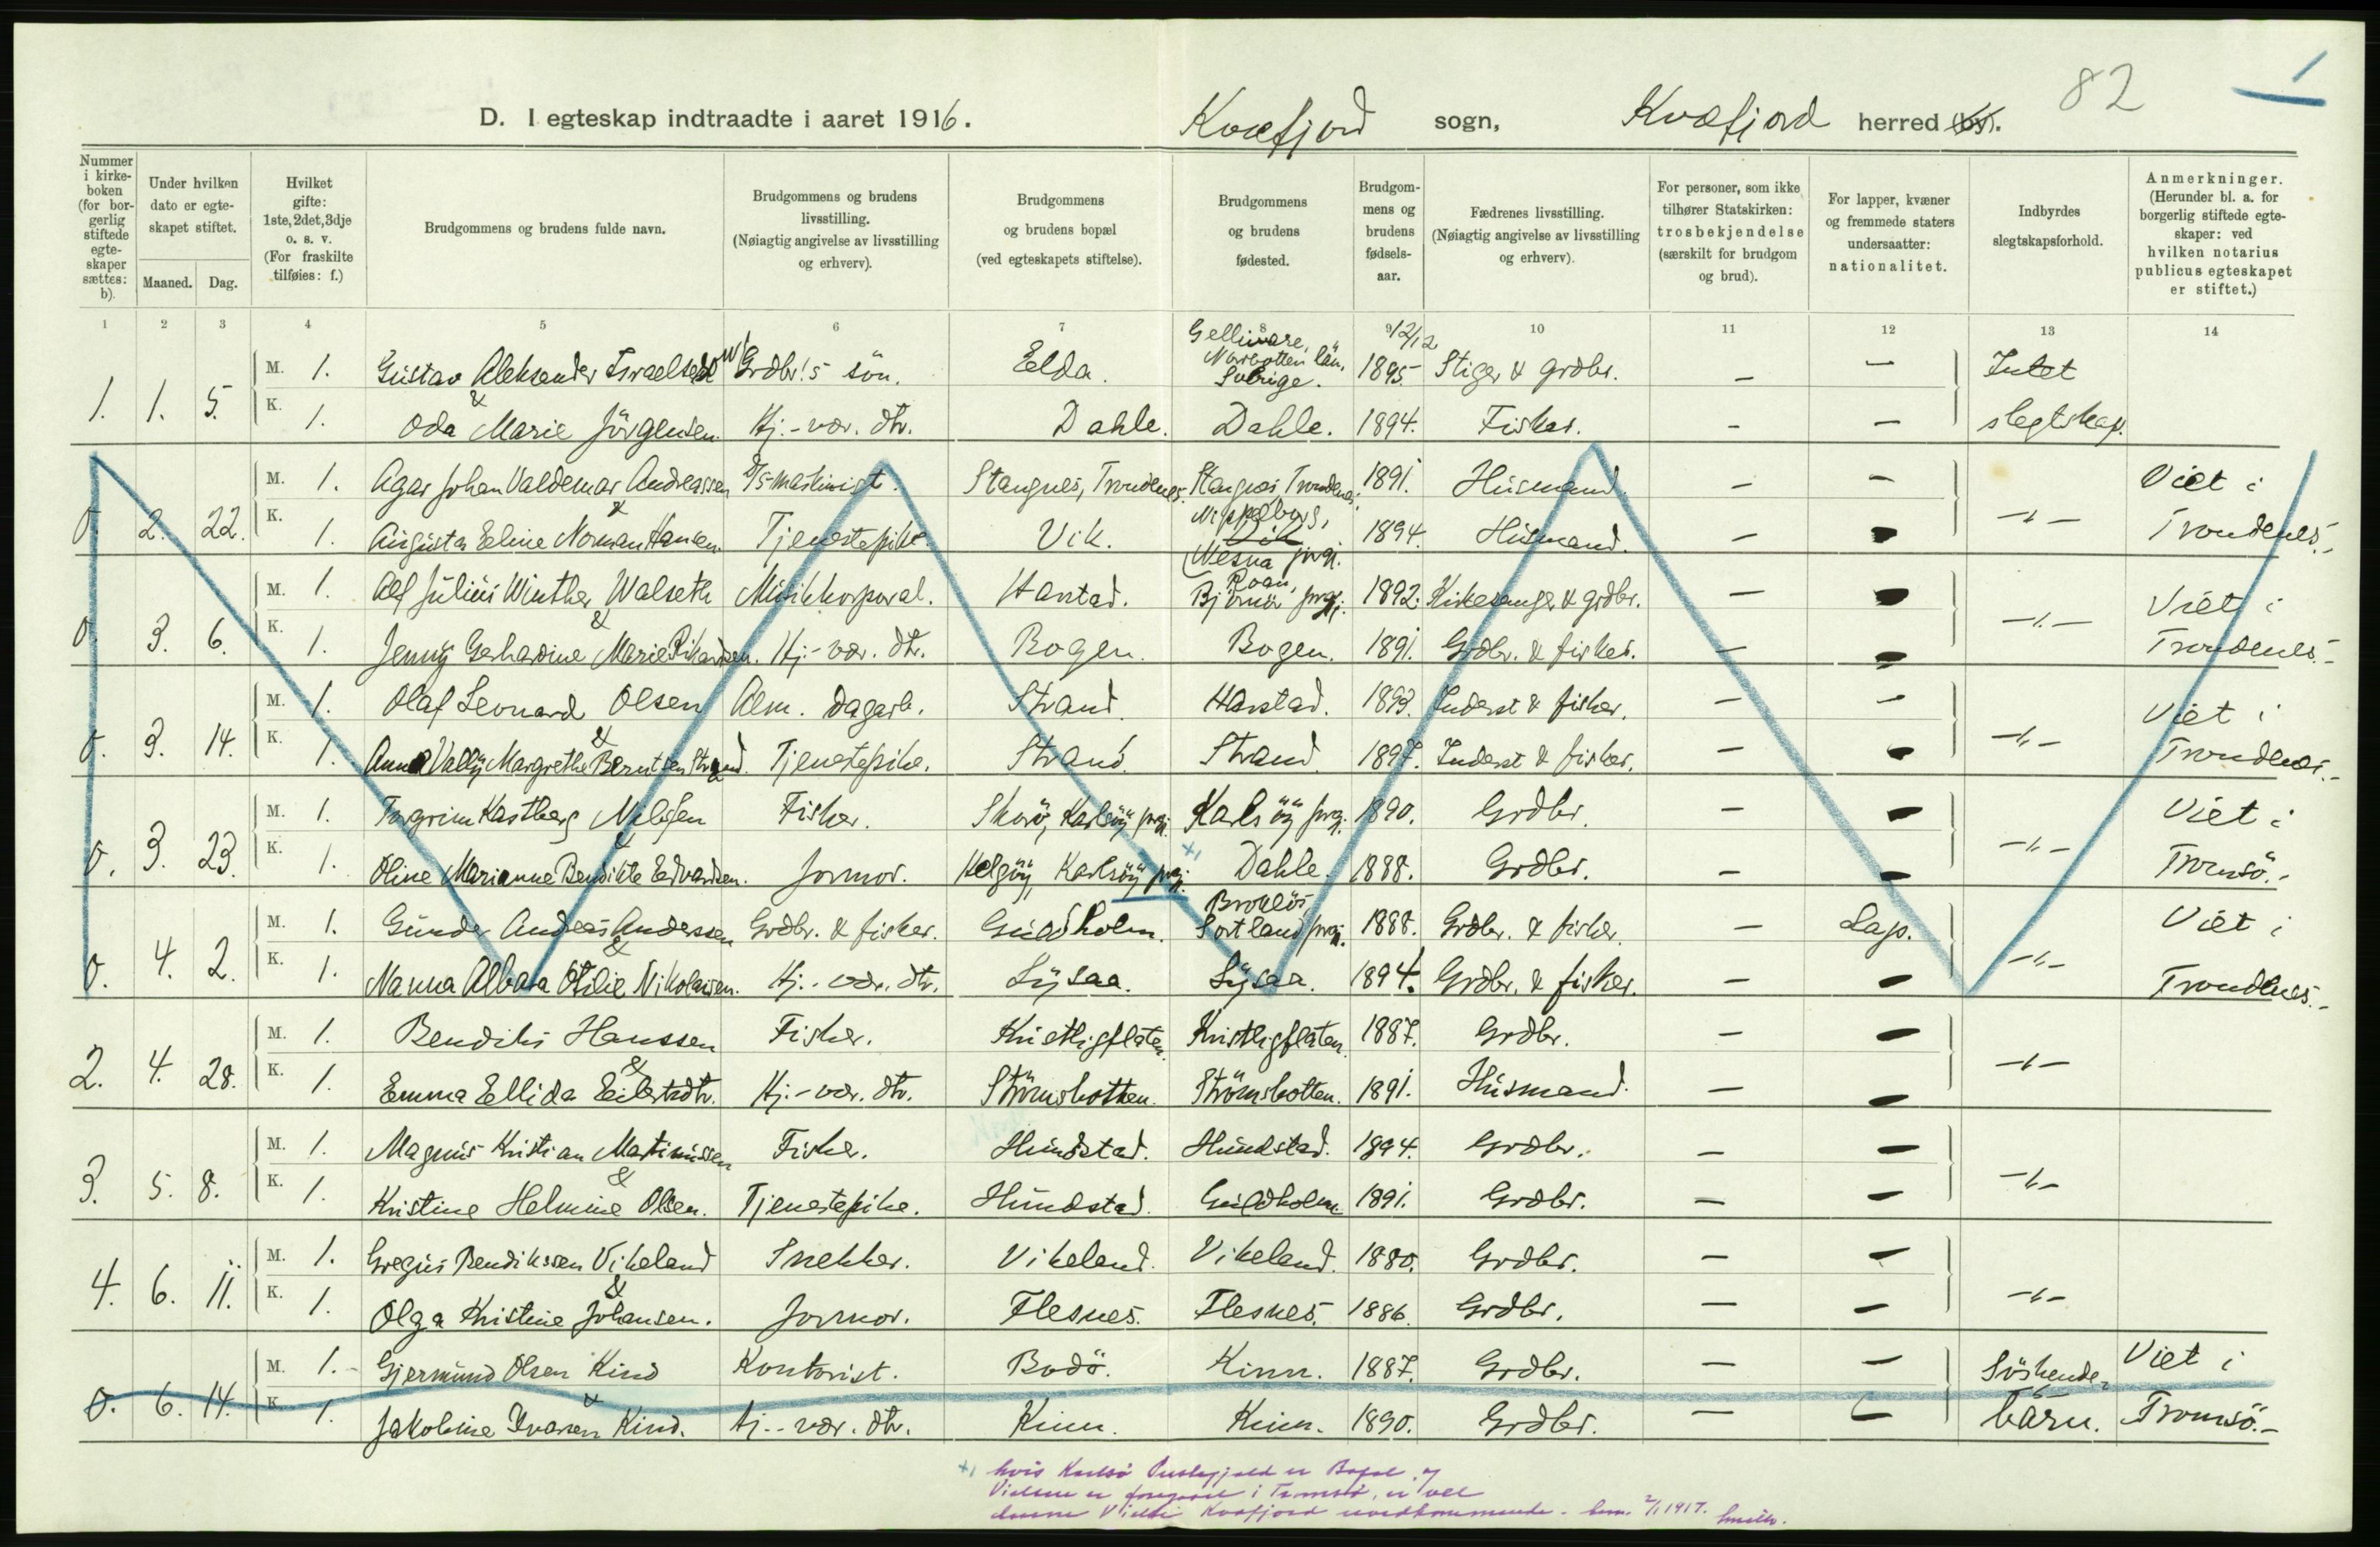 82
D. I egteskap indtraadte i aaret 1916. Kvæfjord sogn, Kvæfjord herred (by).
Nummer i kirke-boken (for bor-gerlig stiftede egte-skaper sættes: b).
Under hvilken dato er egte-skapet stiftet.
Maaned. Dag.
Hvilket gifte: 1ste, 2det, 3dje o. s. v. (For fraskilte tilføies: f.)
Brudgommens og brudens fulde navn.
Brudgommens og brudens livsstilling. (Nøiagtig angivelse av livsstilling og erhverv).
Brudgommens og brudens bopæl (ved egteskapets stiftelse).
Brudgommens og brudens fødested.
Brudgom-mens og brudens fødsels-aar.
Fædrenes livsstilling. (Nøiagtig angivelse av livsstilling og erhverv).
For personer, som ikke tilhører Statskirken: trosbekjendelse (særskilt for brudgom og brud).
For lapper, kvæner og fremmede staters undersaatter: nationalitet.
Indbyrdes slegtskapsforhold.
Anmerkninger. (Herunder bl. a. for borgerlig stiftede egte-skaper: ved hvilken notarius publicus egteskapet er stiftet.)
1 2 3 4 5 6 7 8 9 10 11 12 13 14
1. 1. 5. M. 1. Gustav Aleksander Israelsen Grdbr.s sön. Elda. Gellivare, Norbotten län, Sverige. 12/12 1895 Stiger & grdbr. — — Intet
K. 1. & Oda Marie Jörgensen. Hj.-vær. dtr. Dahle. Dahle. 1894. Fisker. — — slegtskap.
0 2. 22. M. 1. Agar Johan Valdemar Andreassen D/S maskinist. Stangnes, Trondenes. Stangnes, Trondenes. 1891. Husmand. — — Viet i
K. 1. & Augusta Eeline Norman Hansen. Tjenestepike. Vik. Vik (Nesna prgj. 1894. Husmand. — — —"— Trondenes.—
0. 3. 6. M. 1. Alf Julius Winther Walseth Musikkorporal. Harstad. Roan, Bjørnör prgj. 1892. Kirkesanger & grdbr. — — Viet i
K. 1. & Jenny Gerhardine Marie Rikardsen. Hj.-vær. dtr. Bogen. Bogen. 1891. Grdbr. & fisker. — — —"— Trondenes.—
0. 3. 14. M. 1. Olaf Leonard Olsen Alm. dagarb. Strand. Harstad. 1893. Inderst & fisker. — — Viet i
K. 1. & Anna Vally Margrethe Berntsen Strand. Tjenestepike. Strand. Strand. 1897. Inderst & fisker. — — —"— Trondenes.—
0. 3. 23. M. 1. Torgrim Kastberg Nilsen Fisker. Skorö, Karlsöy prgj. Karlsöy prgj. 1890. Grdbr. — — Viet i
K. 1. & Oline Marianne Bendikte Edvardsen. Jormor. Helgöy, Karlsöy prgj. +) Dahle. 1888. Grdbr. — — —"— Tromsö.—
0. 4. 2. M. 1. Gunder Andreas Andersen Grdbr. & fisker. Guldholm. Sortland prgj. 1888. Grdbr. & fisker. — Lap. Viet i
K. 1. & Nanna Albara Otilie Nikolaisen. Hj.-vær. dtr. Lysaa. Lysaa. 1894. Grdbr. & fisker. — — —"— Trondenes.—
2. 4. 28. M. 1. Bendiks Hanssen Fisker. Kustligflaten. Kustligflaten. 1887. Grdbr. — —
K. 1. & Emma Ellida Eilertsdtr. Hj.-vær. dtr. Strömsbotten. Strömsbotten. 1891. Husmand. — — —"—
3. 5. 8. M. 1. Magnus Kristian Martinussen Fisker. Hundstad. Hundstad. 1894. Grdbr. — —
K. 1. & Kristine Helmine Olsen. Tjenestepike. Hundstad. Guldholm. 1891. Grdbr. — — —"—
4. 6. 11. M. 1. Gregus Bendikssen Vikeland Snekker. Vikeland. Vikeland. 1880. Grdbr. — —
K. 1. & Olga Kristine Johansen. Jormor. Flesnes. Flesnes. 1886. Grdbr. — — —"—
0. 6. 14. M. 1. Gjermund Olsen Kind Kontorist. Bodö. Kinn. 1887. Grdbr. — — Söskende- Viet i
K. 1. & Jakobine Ivarsen Kind. Hj.-vær. dtr. Kinn. Kinn. 1890. Grdbr. — — barn. Tromsö.—
+) hvis Karlsö Prestegjeld er Bopæl og
Vielsen er foregaaet i Tromsö, er vel
denne Vielse Kvæfjord uvedkommende. 2/1 1917.